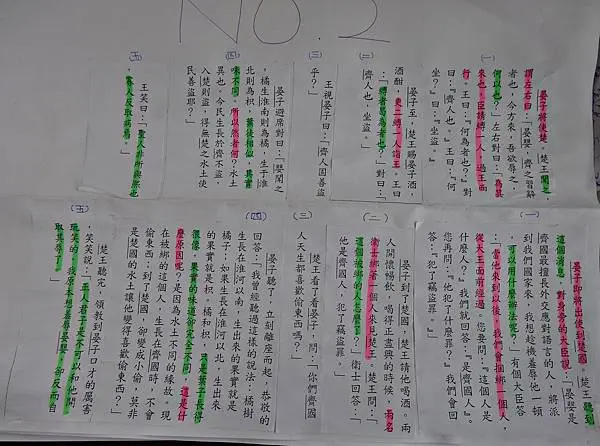 NO.2
(一)
晏子將使楚。楚王聞之,
謂左右曰:「晏嬰,齊之習辭
者也,今方來,吾欲辱之,
何以也?」左右對曰:「為其
來也,臣請縛一人,過王而
行。王曰:『何為者也?』對
曰:『齊人也。』王曰:『何
坐?』曰:『坐盜。』」
(二)
晏子至,楚王賜晏子酒,
酒酣,吏二縛一人詣王。王曰
:「縛者曷為者也?」對曰:「
齊人也,坐盜。」
(三)
王視晏子曰:「齊人固善盜
乎?」
(四)
晏子避席對曰:「嬰聞之
,橘生淮南則為橘,生于淮
北則為枳,葉徒相似,其實
味不同。所以然者何?水土
異也。今民生長於齊不盜,
入楚則盜,得無楚之水土使
民善盜耶?」
(五)
王笑曰:「聖人非所與熙也
,寡人反取病焉。」
(一)
晏子即將出使到楚國。楚王聽到
這個消息,對身旁的大臣說:「晏嬰是
齊國最擅長外交應對語言的人,將派
到我們國家來,我想趁機羞辱他一頓
,可以用什麼辦法呢?」有個大臣答
:「當他來到以後,我們會捆綁一個人,
從大王面前經過。您要問:『這個人是
什麼人?』我們就回答:『是齊國人。』
您再問:『他犯了什麼罪?』我們會回
答:『犯了竊盜罪。』」
(二)
晏子到了楚國,楚王請他喝酒。兩
人開懷暢飲,喝得正盡興的時候,兩名
衛士綁著一個人來見楚王。楚王問:「
這個被綁的人怎麼了?」衛士回答:「
他是齊國人,犯了竊盜罪。」
(三)
楚王看了看晏子,問:「你們齊國
人天生都喜歡偷東西嗎?」
(四)
晏子聽了,立刻離座而起,恭敬的
回答:「我曾經聽過這樣的說法:橘樹
生長在淮河以南,生出來的果實就是
橘子;如果生長在淮河以北,生出來
的果實就是枳。橘和枳,只是葉子長得
很像,果實的味道卻完全不同,這是什
麼原因呢?是因為水土不同的緣故。現
在被綁的這個人,生長在齊國時,不會
偷東西;到了楚國,卻變成小偷,莫非
是楚國的水土讓他變得喜歡偷東西?」
(五)
楚王聽完,領教到晏子口才的厲害
,笑笑說:「聖人君子是不可以和他開
玩笑的,我原本想羞辱晏嬰,卻反而自
取其辱了。」